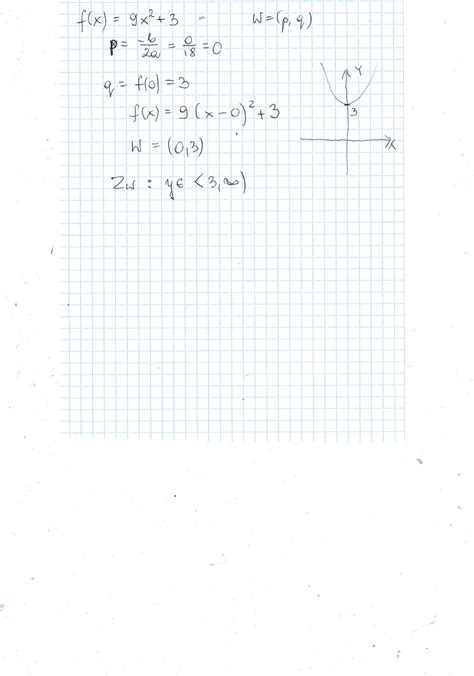 f(x) = 9x² + 3 – W = (p, q)
p = -b/2a = 0/18 = 0
q = f(0) = 3
f(x) = 9(x-0)² + 3
W = (0,3)
Zw : y∈ <3, ∞)
Y
3
X